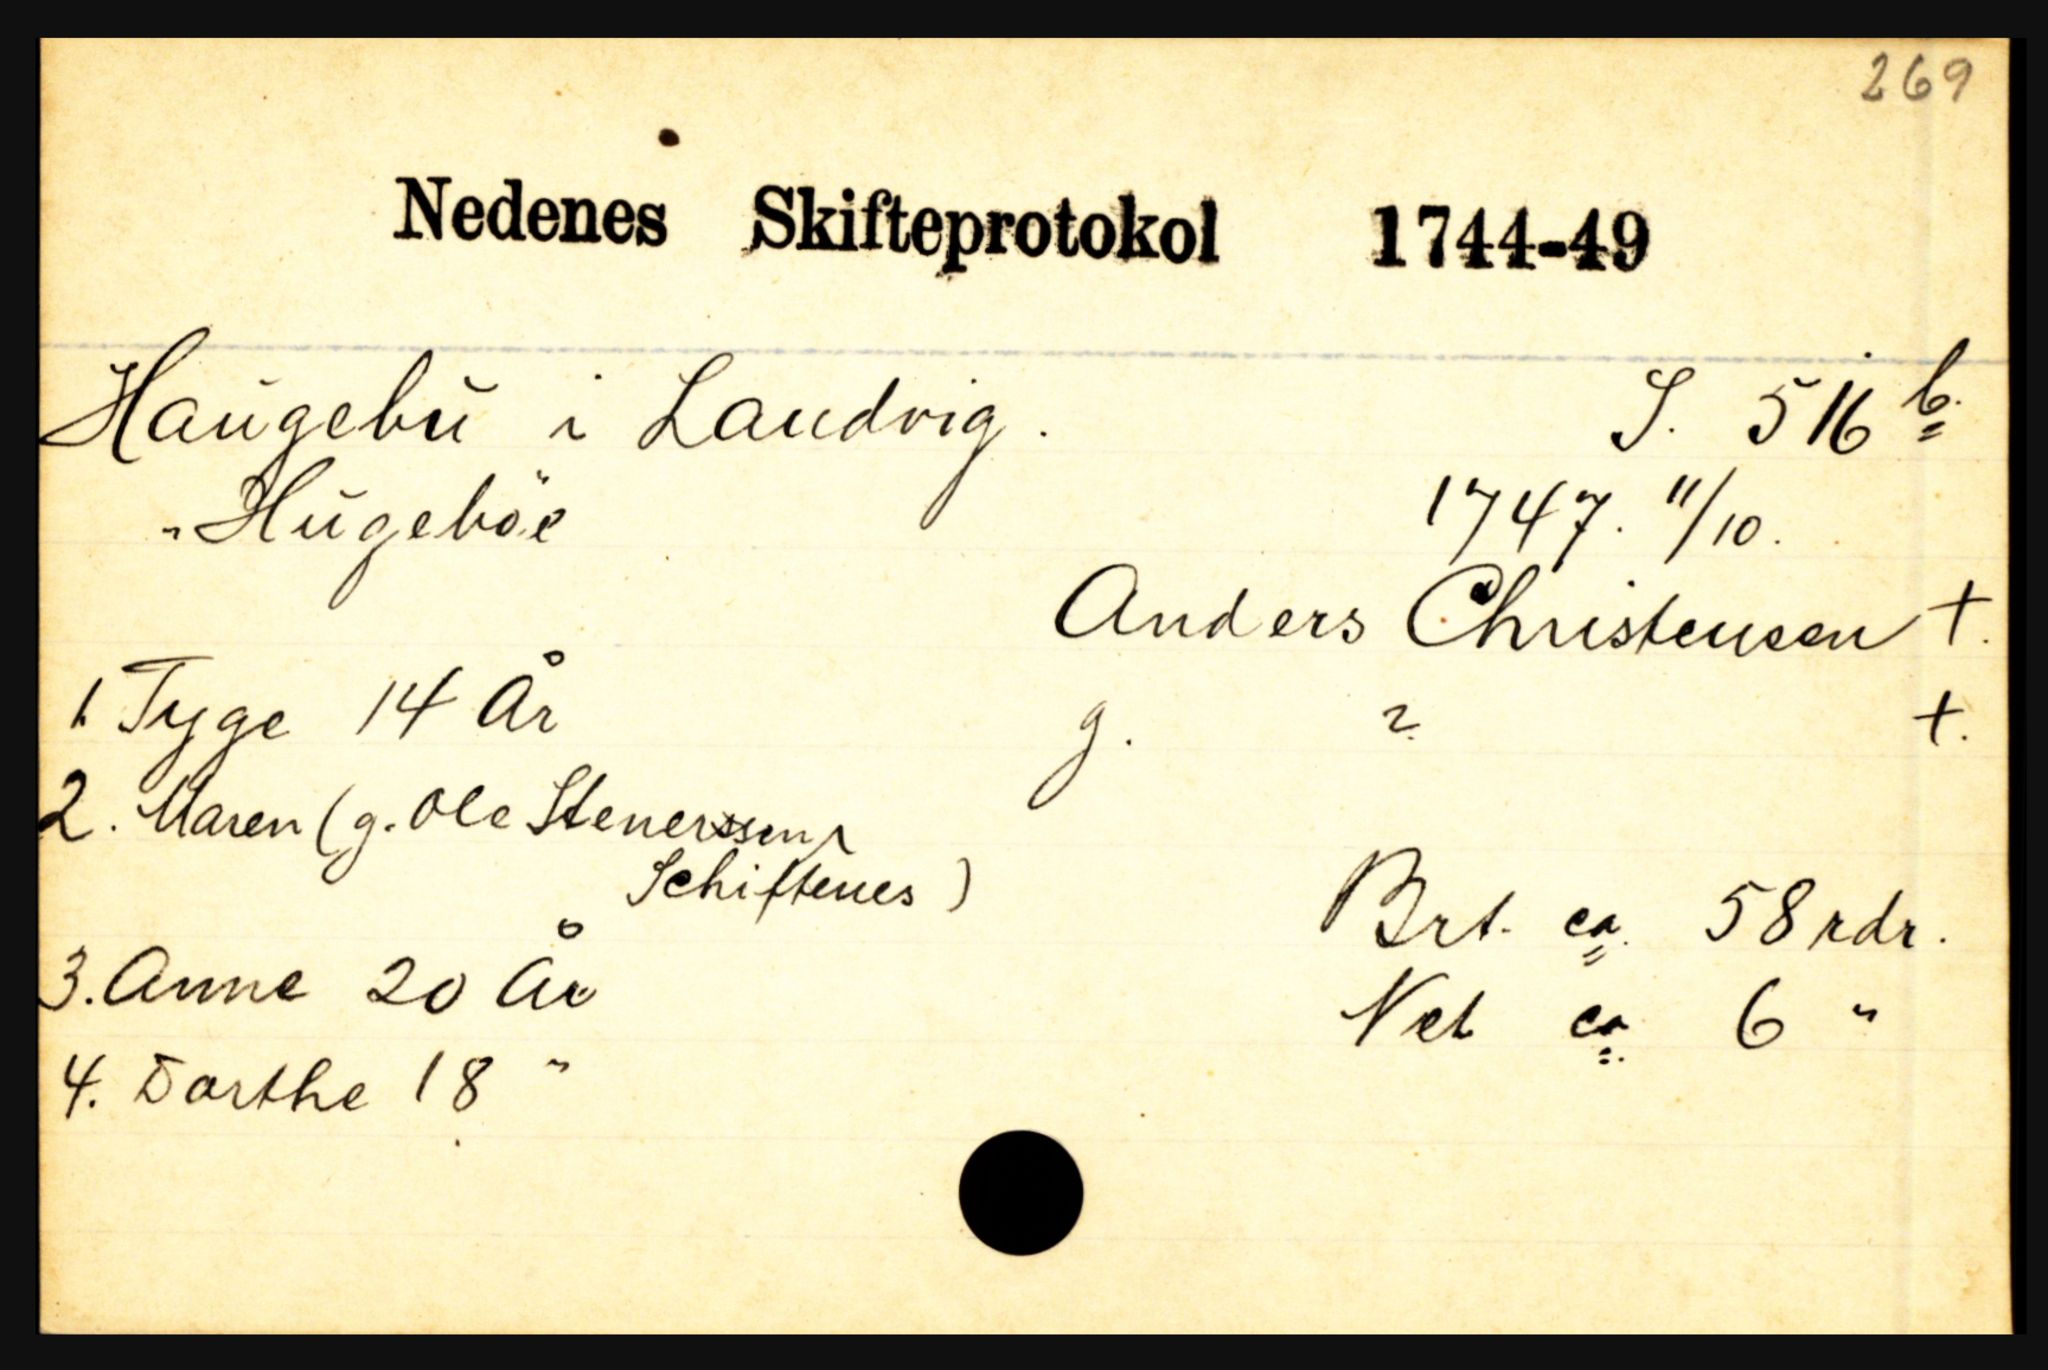 269
Nedenes Skifteprotokol 1744-49
Haugebu i Landvig. S. 516 b.
"Hugeböe 1747. 11/10.
Anders Christensen +.
1. Tyge 14 År g. ? +.
2. Maren (g. Ole Stenerssen,
Schiftenes)
Brt. ca. 58 rdr.
3. Anne 20 År
Net ca. 6 "
4. Dorthe 18 "